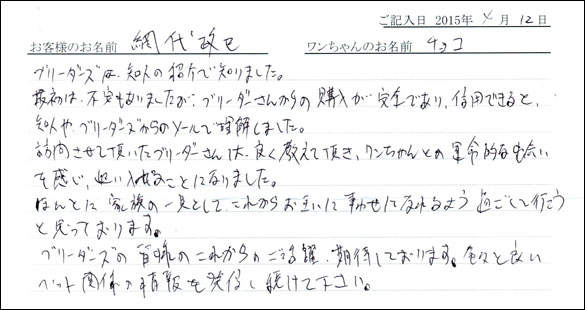 ご記入日 2015年 4月 12日
お客様のお名前 網代政巳 ワンちゃんのお名前 チョコ
ブリーダーズは、知人の紹介で知りました。
最初は、不安もありましたが、ブリーダーさんからの購入が安全であり、信用できると、
知人や、ブリーダーズからのメールで理解しました。
訪問させて頂いたブリーダーさんは、良く教えて頂き、ワンちゃんとの運命的な出会い
を感じ、迎い入れることになりました。
ほんとに家族の一員として、これからお互いに幸わせになれるよう過ごして行こう
と思っております。
ブリーダーズの皆様のこれからのご活躍、期待しております。色々と良い
ペット関係の情報を発信し続けて下さい。